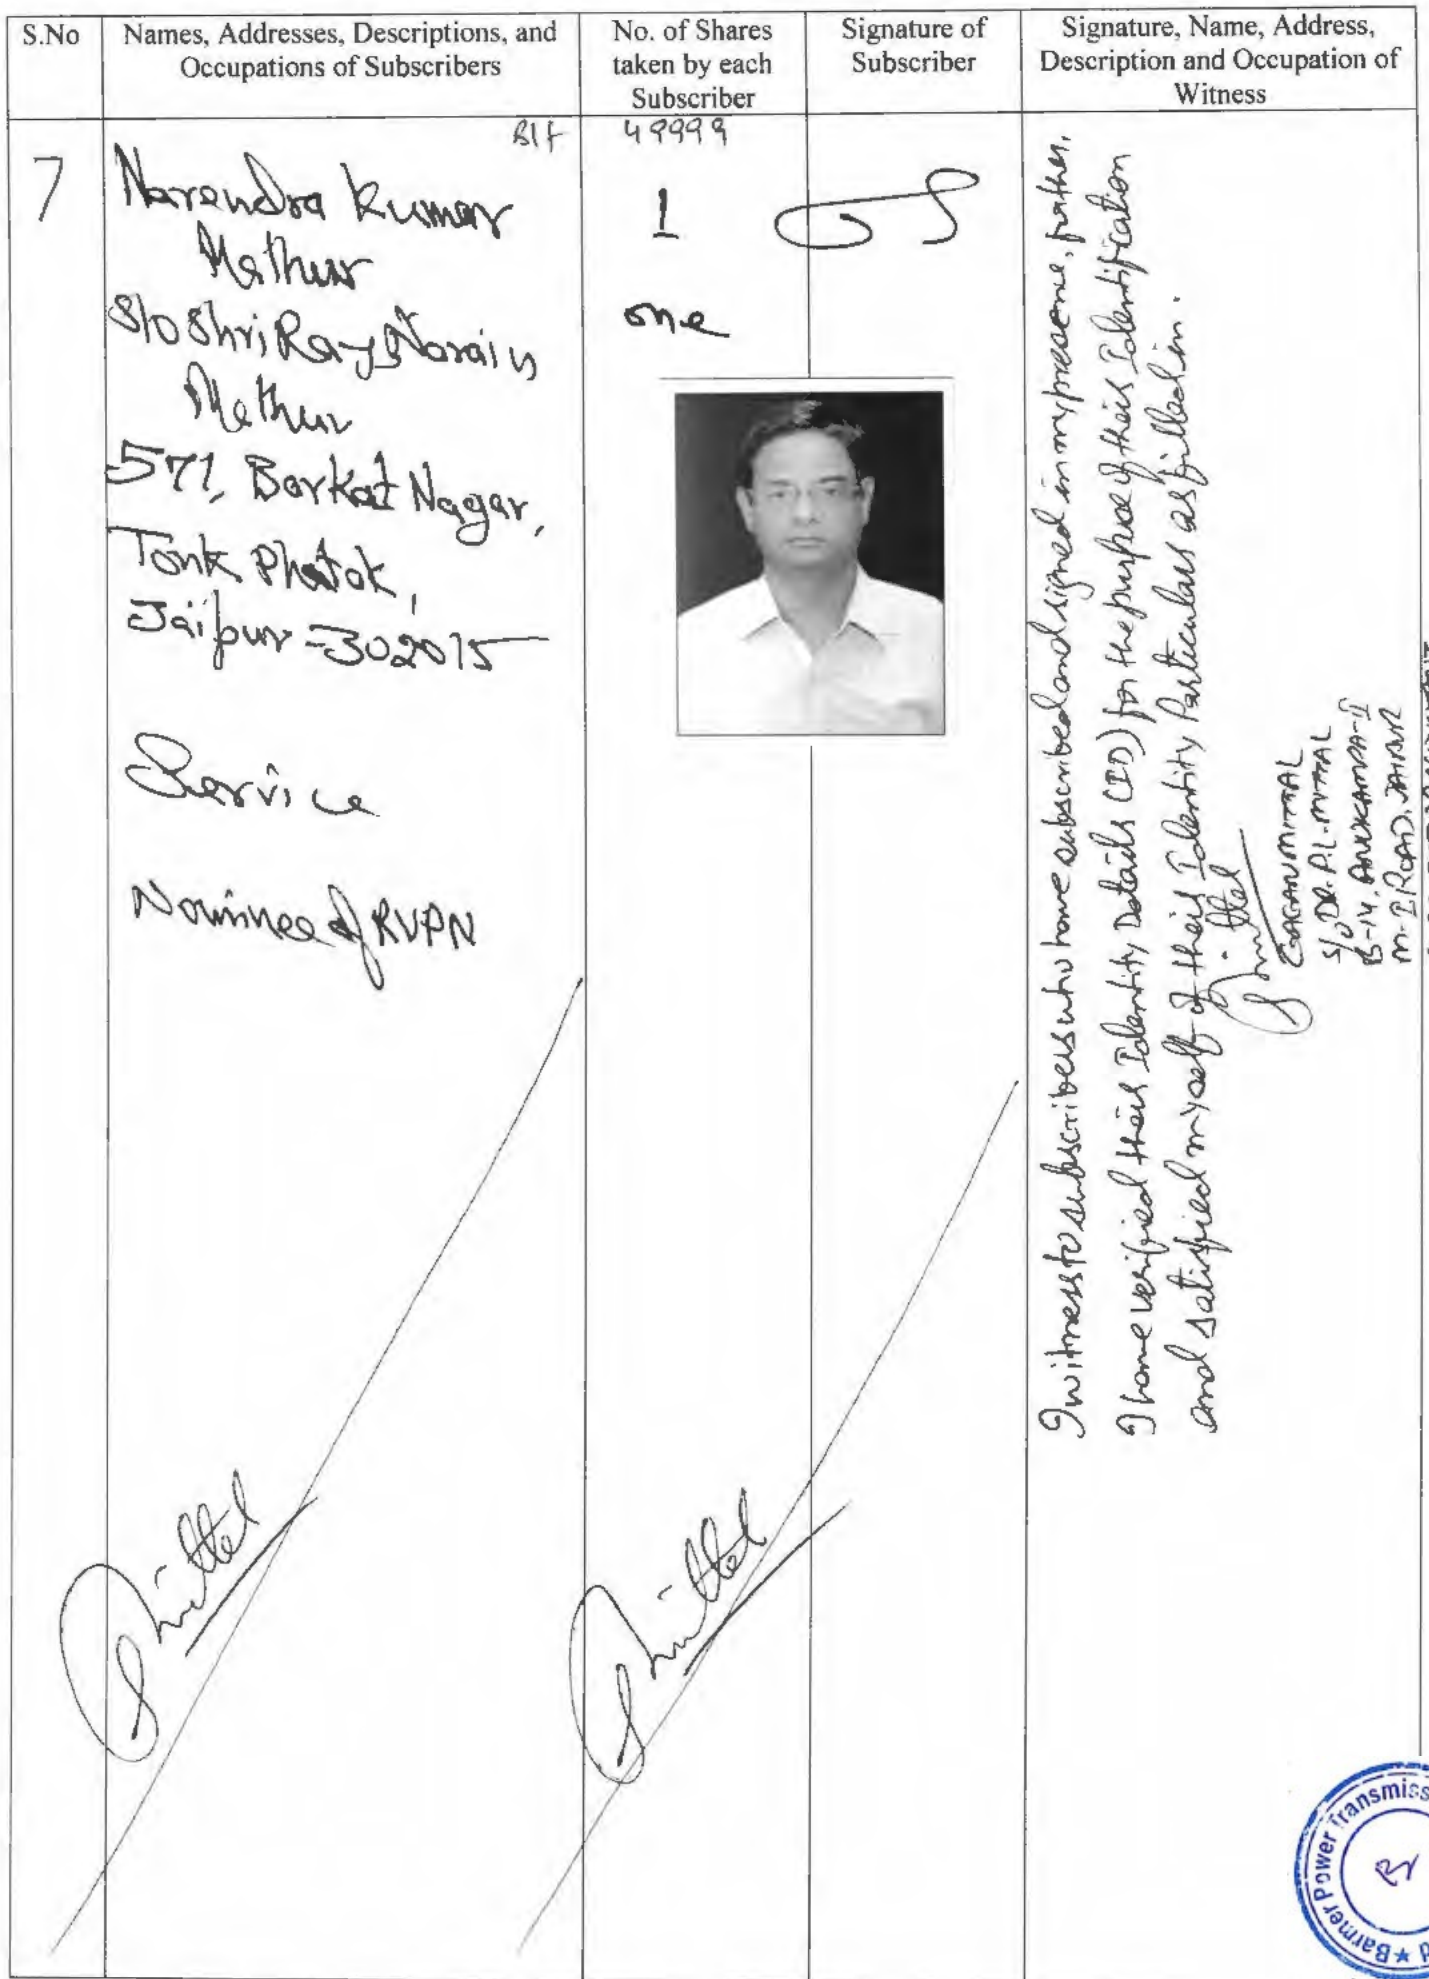 S.No
Names, Addresses, Descriptions, and
Occupations of Subscribers
No. of Shares
taken by each
Subscriber
Signature of
Subscriber
Signature, Name, Address,
Description and Occupation of
Witness
B/F 49999
7
Narendra Kumar
Mathur
S/o Shri Raj Narain
Mathur
571, Barkat Nagar,
Tonk Phatak,
Jaipur-302015
Service
Nominee of RVPN
1
one
I witness to subscribers who have subscribed and signed in my presence, further,
I have verified their Identity Details (ID) for the purpose of their Identification
and satisfied myself of their Identity Particulars as filled in.
GMittal
GAGAN MITTAL
S/O DR. P.L. MITTAL
B-14, ANUKAMPA-II
M-I ROAD, JAIPUR
GMittal
GMittal
Barmer Power Transmiss